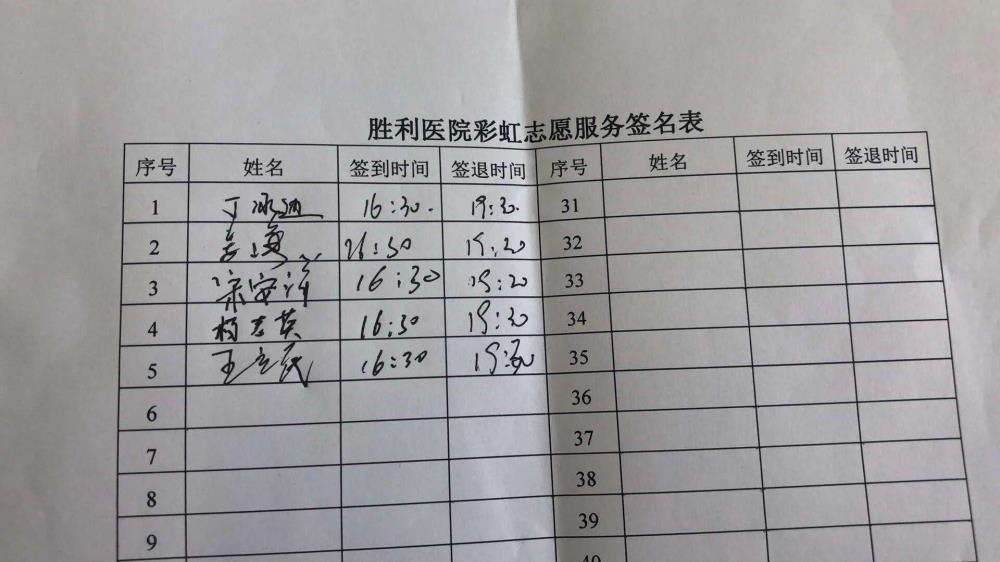 胜利医院彩虹志愿服务签名表
序号 姓名 签到时间 签退时间 序号 姓名 签到时间 签退时间
1 16:30. 19:30. 31
2 16:30 32
3 16:30 33
4 杨志英 16:30 19:30 34
5 王立民 16:30 19:30 35
6 36
7 37
8 38
9 39
40